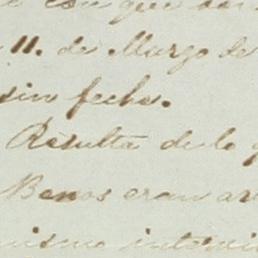 con que
11. de Marzo de
sin fecha.
Resulta de lo q
Benos eran ar
mismo intervi